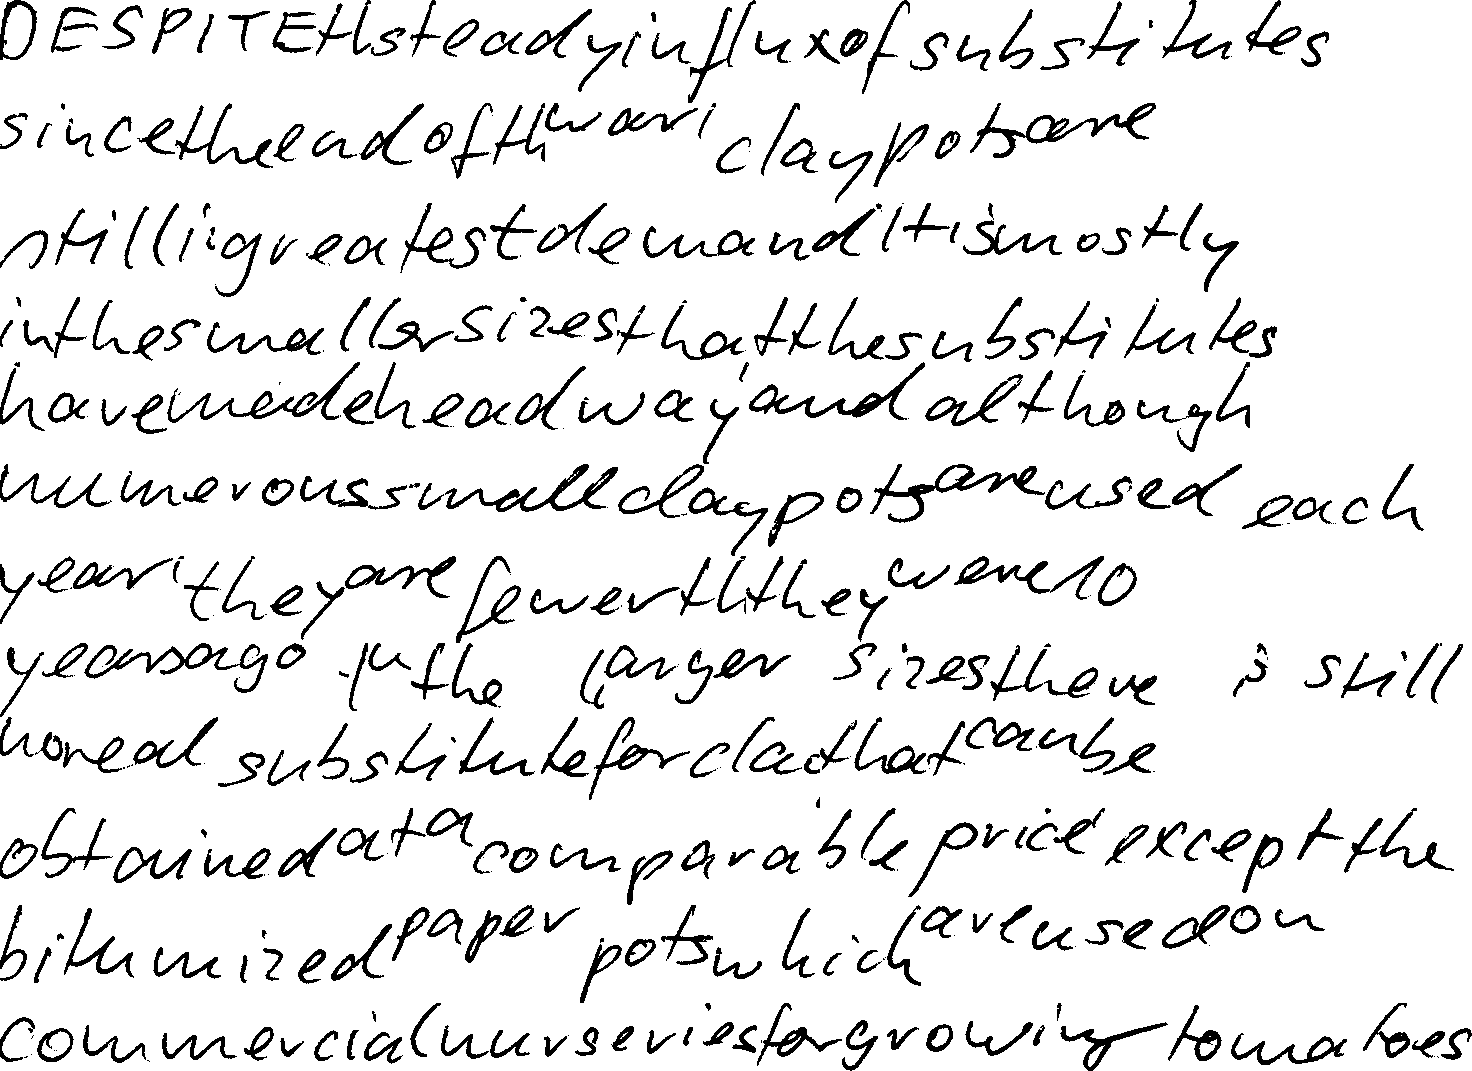 DESPITE th steady influx of substitutes
since the end of th war, clay pots are
still i. greatest demand. It is mostly
in the smaller sizes that the substitutes
have made headway, and although
numerous small clay pots are used each
year, they are fewer th they were 10
years ago. In the larger sizes there is still
no real substitute for cla that can be
obtained at a comparable price, except the
bitumized paper pots which are used on
commercial nurseries for growing tomatoes